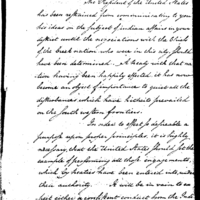 The President of the United States
has been restrained from communicating to you
his ideas on the subject of indian affairs in your
district until the negociations with the Chiefs
of the creek nation who were in this city should
have been determined. A treaty with that na-
tion having been happily effected it has now
become an object of importance to quiet all the
disturbances which have hitherto prevailed
on the south western frontiers.
In order to effect so desireable a
purpose upon proper principles, it is highly
necessary, that the United States should set the
example of performing all those engagements,
which by treaties have been entered into, under
their authority. It will be in vain to ex-
pect either a consistent conduct from the Indi-